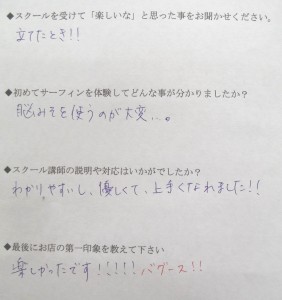 ◆スクールを受けて「楽しいな」と思った事をお聞かせください。
立てたとき!!
◆初めてサーフィンを体験してどんな事が分かりましたか?
脳みそを使うのが大変…。
◆スクール講師の説明や対応はいかがでしたか?
わかりやすいし、優しくて、上手くなれました!!
◆最後にお店の第一印象を教えて下さい
楽しかったです!!!!! バグース!!